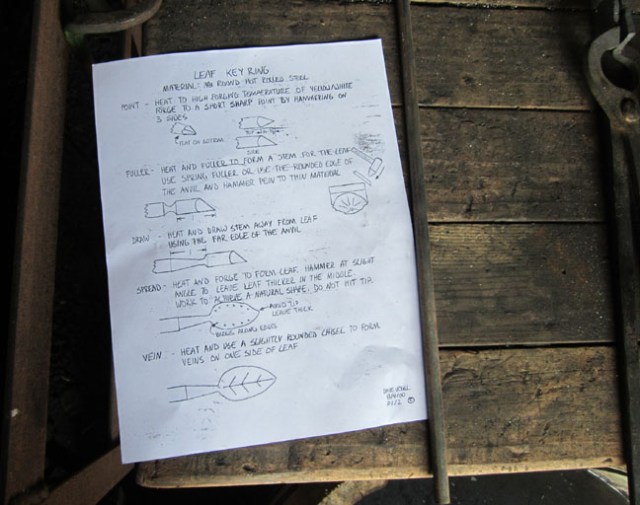 LEAF KEY RING
MATERIAL: 3/8 ROUND HOT ROLLED STEEL
POINT - HEAT TO HIGH FORGING TEMPERATURE OF YELLOW/WHITE
FORGE TO A SHORT SHARP POINT BY HAMMERING ON
3 SIDES
FLAT ON BOTTOM
SIDE
FULLER - HEAT AND FULLER TO FORM A STEM FOR THE LEAF
USE SPRING FULLER OR USE THE ROUNDED EDGE OF
THE ANVIL AND HAMMER PEIN TO THIN MATERIAL
DRAW - HEAT AND DRAW STEM AWAY FROM LEAF
USING FAR EDGE OF THE ANVIL
SPREAD - HEAT AND FORGE TO FORM LEAF. HAMMER AT SLIGHT
ANGLE TO LEAVE LEAF THICKER IN THE MIDDLE.
WORK TO ACHIEVE A NATURAL SHAPE. DO NOT HIT TIP.
AVOID TIP
LEAVE THICK
BLOWS ALONG EDGES
VEIN - HEAT AND USE A SLIGHTLY ROUNDED CHISEL TO FORM
VEINS ON ONE SIDE OF LEAF